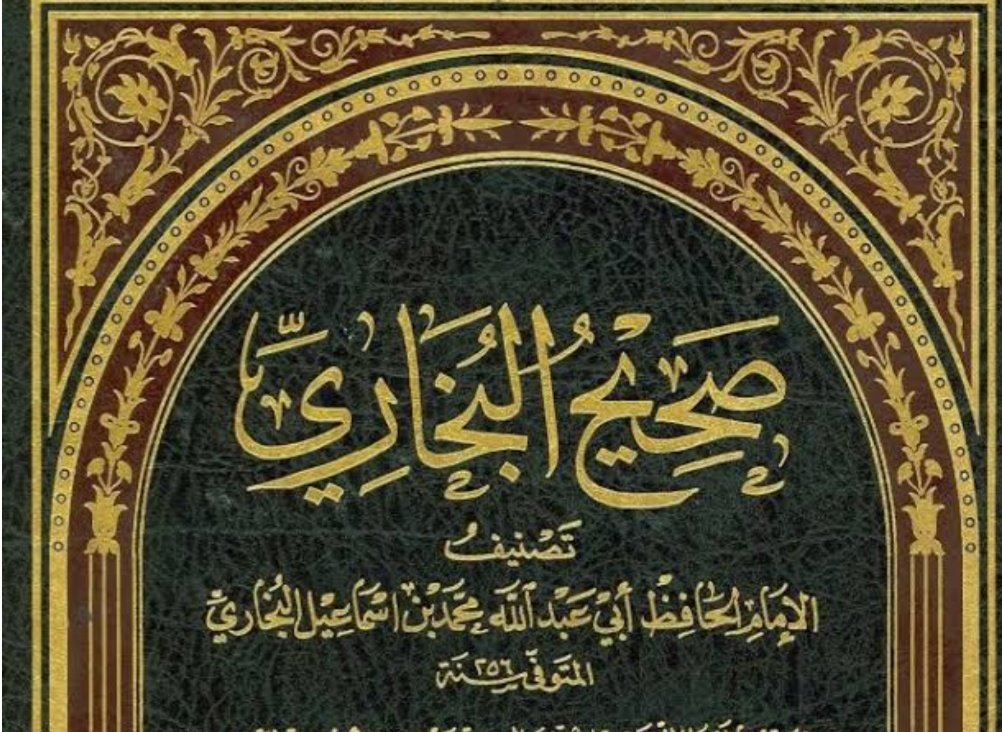 صَحِيحُ البُخَارِيّ
تَصْنِيفُ
الإِمَامِ الحَافِظْ أَبِيْ عَبْدِ اللَّه مُحَمَّد بْنِ اسْمَاعِيْل البُخَاريّ
المتَوفّى سَنَة ٢٥٦